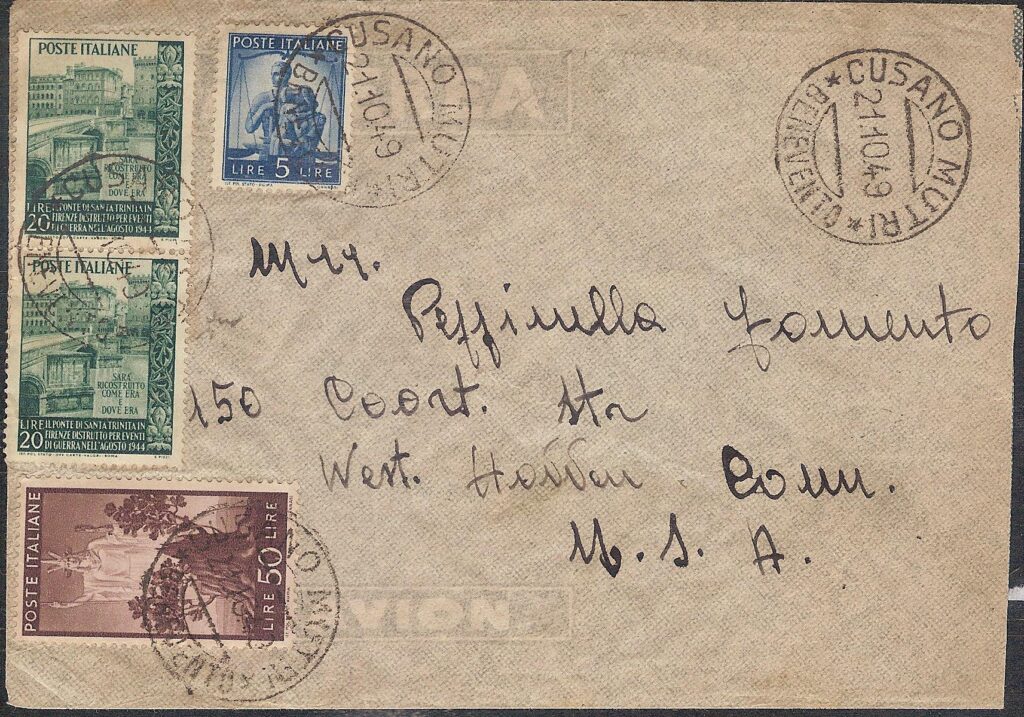 POSTE ITALIANE
SARÀ
RICOSTRUTTO
COME ERA
E
DOVE ERA
LIRE 20
IL PONTE DI SANTA TRINITA IN
FIRENZE DISTRUTTO PER EVENTI
DI GUERRA NELL'AGOSTO 1944
POSTE ITALIANE
LIRE 5
CUSANO MUTRI
21.10.49
CUSANO MUTRI
★ BENEVENTO ★
21.10.49
POSTE ITALIANE
SARÀ
RICOSTRUTTO
COME ERA
E
DOVE ERA
LIRE 20
IL PONTE DI SANTA TRINITA IN
FIRENZE DISTRUTTO PER EVENTI
DI GUERRA NELL'AGOSTO 1944
Peppinella Fomento
150 Coort. Str
West. Hovven Conn.
U. S. A.
POSTE ITALIANE
LIRE 50 LIRE